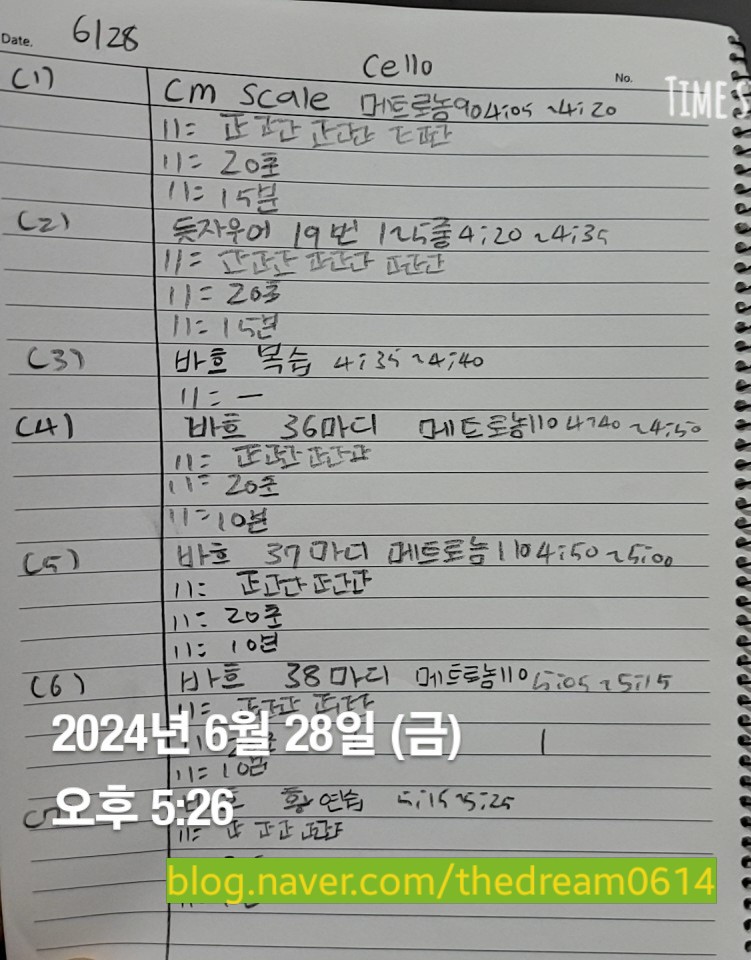 Date. 6/28
Cello
No.
TIMES
(1) Cm scale 메트로놈90 4:05 ~4:20
11= 正正正正正正正正正
11= 20초
11= 15분
(2) 듯자우어 19번 1~5줄 4:20 ~4:35
11= 正正正正正正正正正
11= 20초
11= 15분
(3) 바흐 복습 4:35 ~4:40
11= 一
(4) 바흐 36마디 메트로놈110 4:40 ~4:50
11= 正正正正正正
11= 20초
11= 10분
(5) 바흐 37마디 메트로놈110 4:50 ~5:00
11= 正正正正正正
11= 20초
11= 10분
(6) 바흐 38마디 메트로놈110 5:05 ~5:15
11= 正正正正正正
2024년 6월 28일 (금)
11= 10분
오후 5:26
연습 5:15~5:25
11= 正正正正正正
blog.naver.com/thedream0614